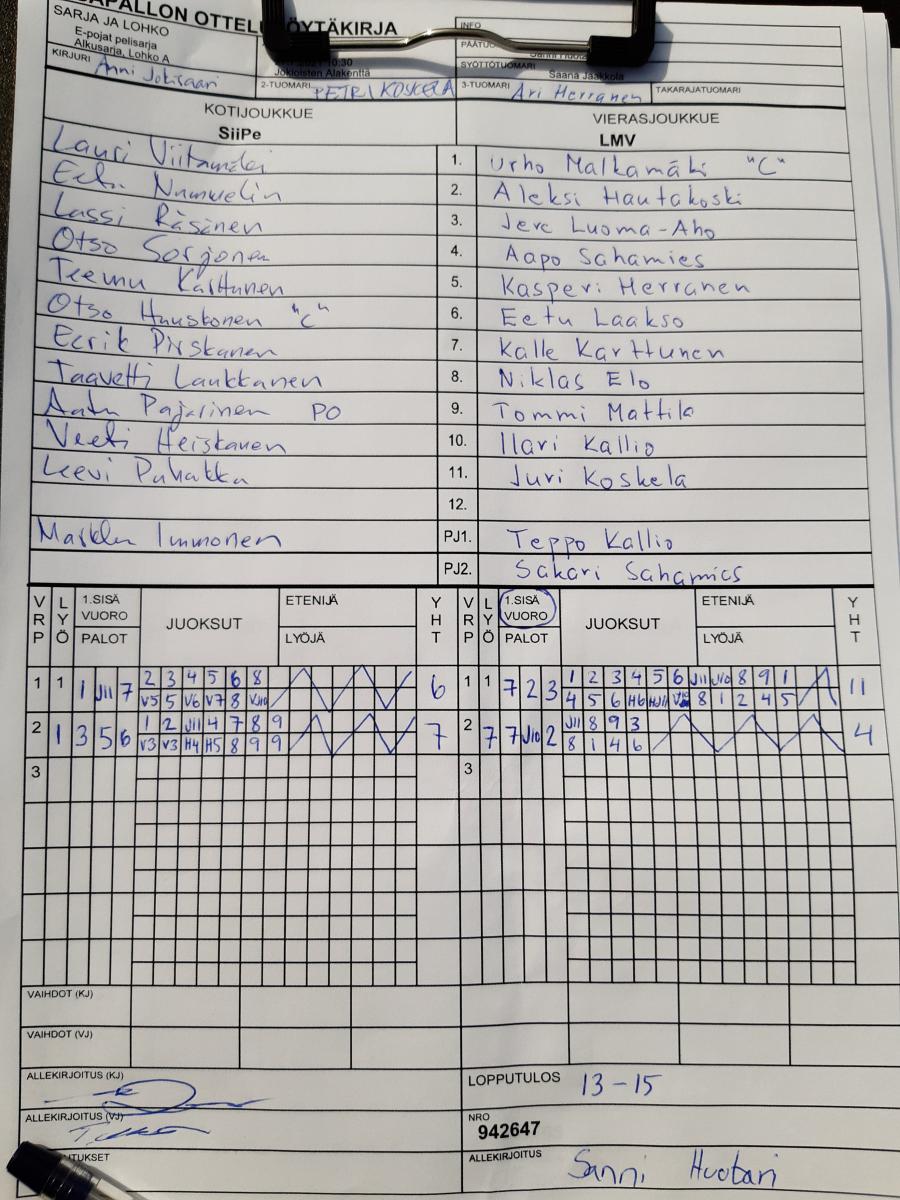 SAPALLON OTTELUPÖYTÄKIRJA
SARJA JA LOHKO
E-pojat pelisarja
Alkusarja, Lohko A
INFO
10:30
Jokioisten Alakenttä
SYÖTTÖTUOMARI
Saana Jaakkola
KIRJURI Anni Jokisaari
2-TUOMARI PETRI KOSKELA
3-TUOMARI Ari Herranen
TAKARAJATUOMARI
KOTIJOUKKUE VIERASJOUKKUE
SiiPe LMV
Lauri Viitamäki 1. Urho Malkamäki "C"
Eetu Numelin 2. Aleksi Hautakoski
Lassi Räsänen 3. Jere Luoma-Aho
Otso Sorjonen 4. Aapo Sahamies
Teemu Karttunen 5. Kasperi Herranen
Otso Huuskonen "C" 6. Eetu Laakso
Eerik Pirskanen 7. Kalle Karttunen
Taavetti Laukkanen 8. Niklas Elo
Aatu Pajarinen PO 9. Tommi Mattila
Veeti Heiskanen 10. Ilari Kallio
Leevi Puhakka 11. Juri Koskela
12.
Markku Immonen PJ1. Teppo Kallio
PJ2. Sakari Sahamies
VRP LYÖ 1.SISÄ VUORO PALOT JUOKSUT ETENIJÄ LYÖJÄ YHT VRP LYÖ 1.SISÄ VUORO PALOT JUOKSUT ETENIJÄ LYÖJÄ YHT
1 1 1 J11 7 2 3 4 5 6 8 6 1 1 7 2 3 1 2 3 4 5 6 J11 J10 8 9 1 11
V5 5 V6 V7 8 V10 4 5 6 H6 H11 8 1 2 4 5
2 1 3 5 6 1 2 J11 4 7 8 9 7 2 7 7 J10 2 J11 8 9 3 4
V3 V3 H4 H5 8 9 9 8 1 4 6
3 3
VAIHDOT (KJ)
VAIHDOT (VJ)
ALLEKIRJOITUS (KJ) LOPPUTULOS 13-15
ALLEKIRJOITUS (VJ) NRO
942647
TUKSET ALLEKIRJOITUS Sanni Huotari